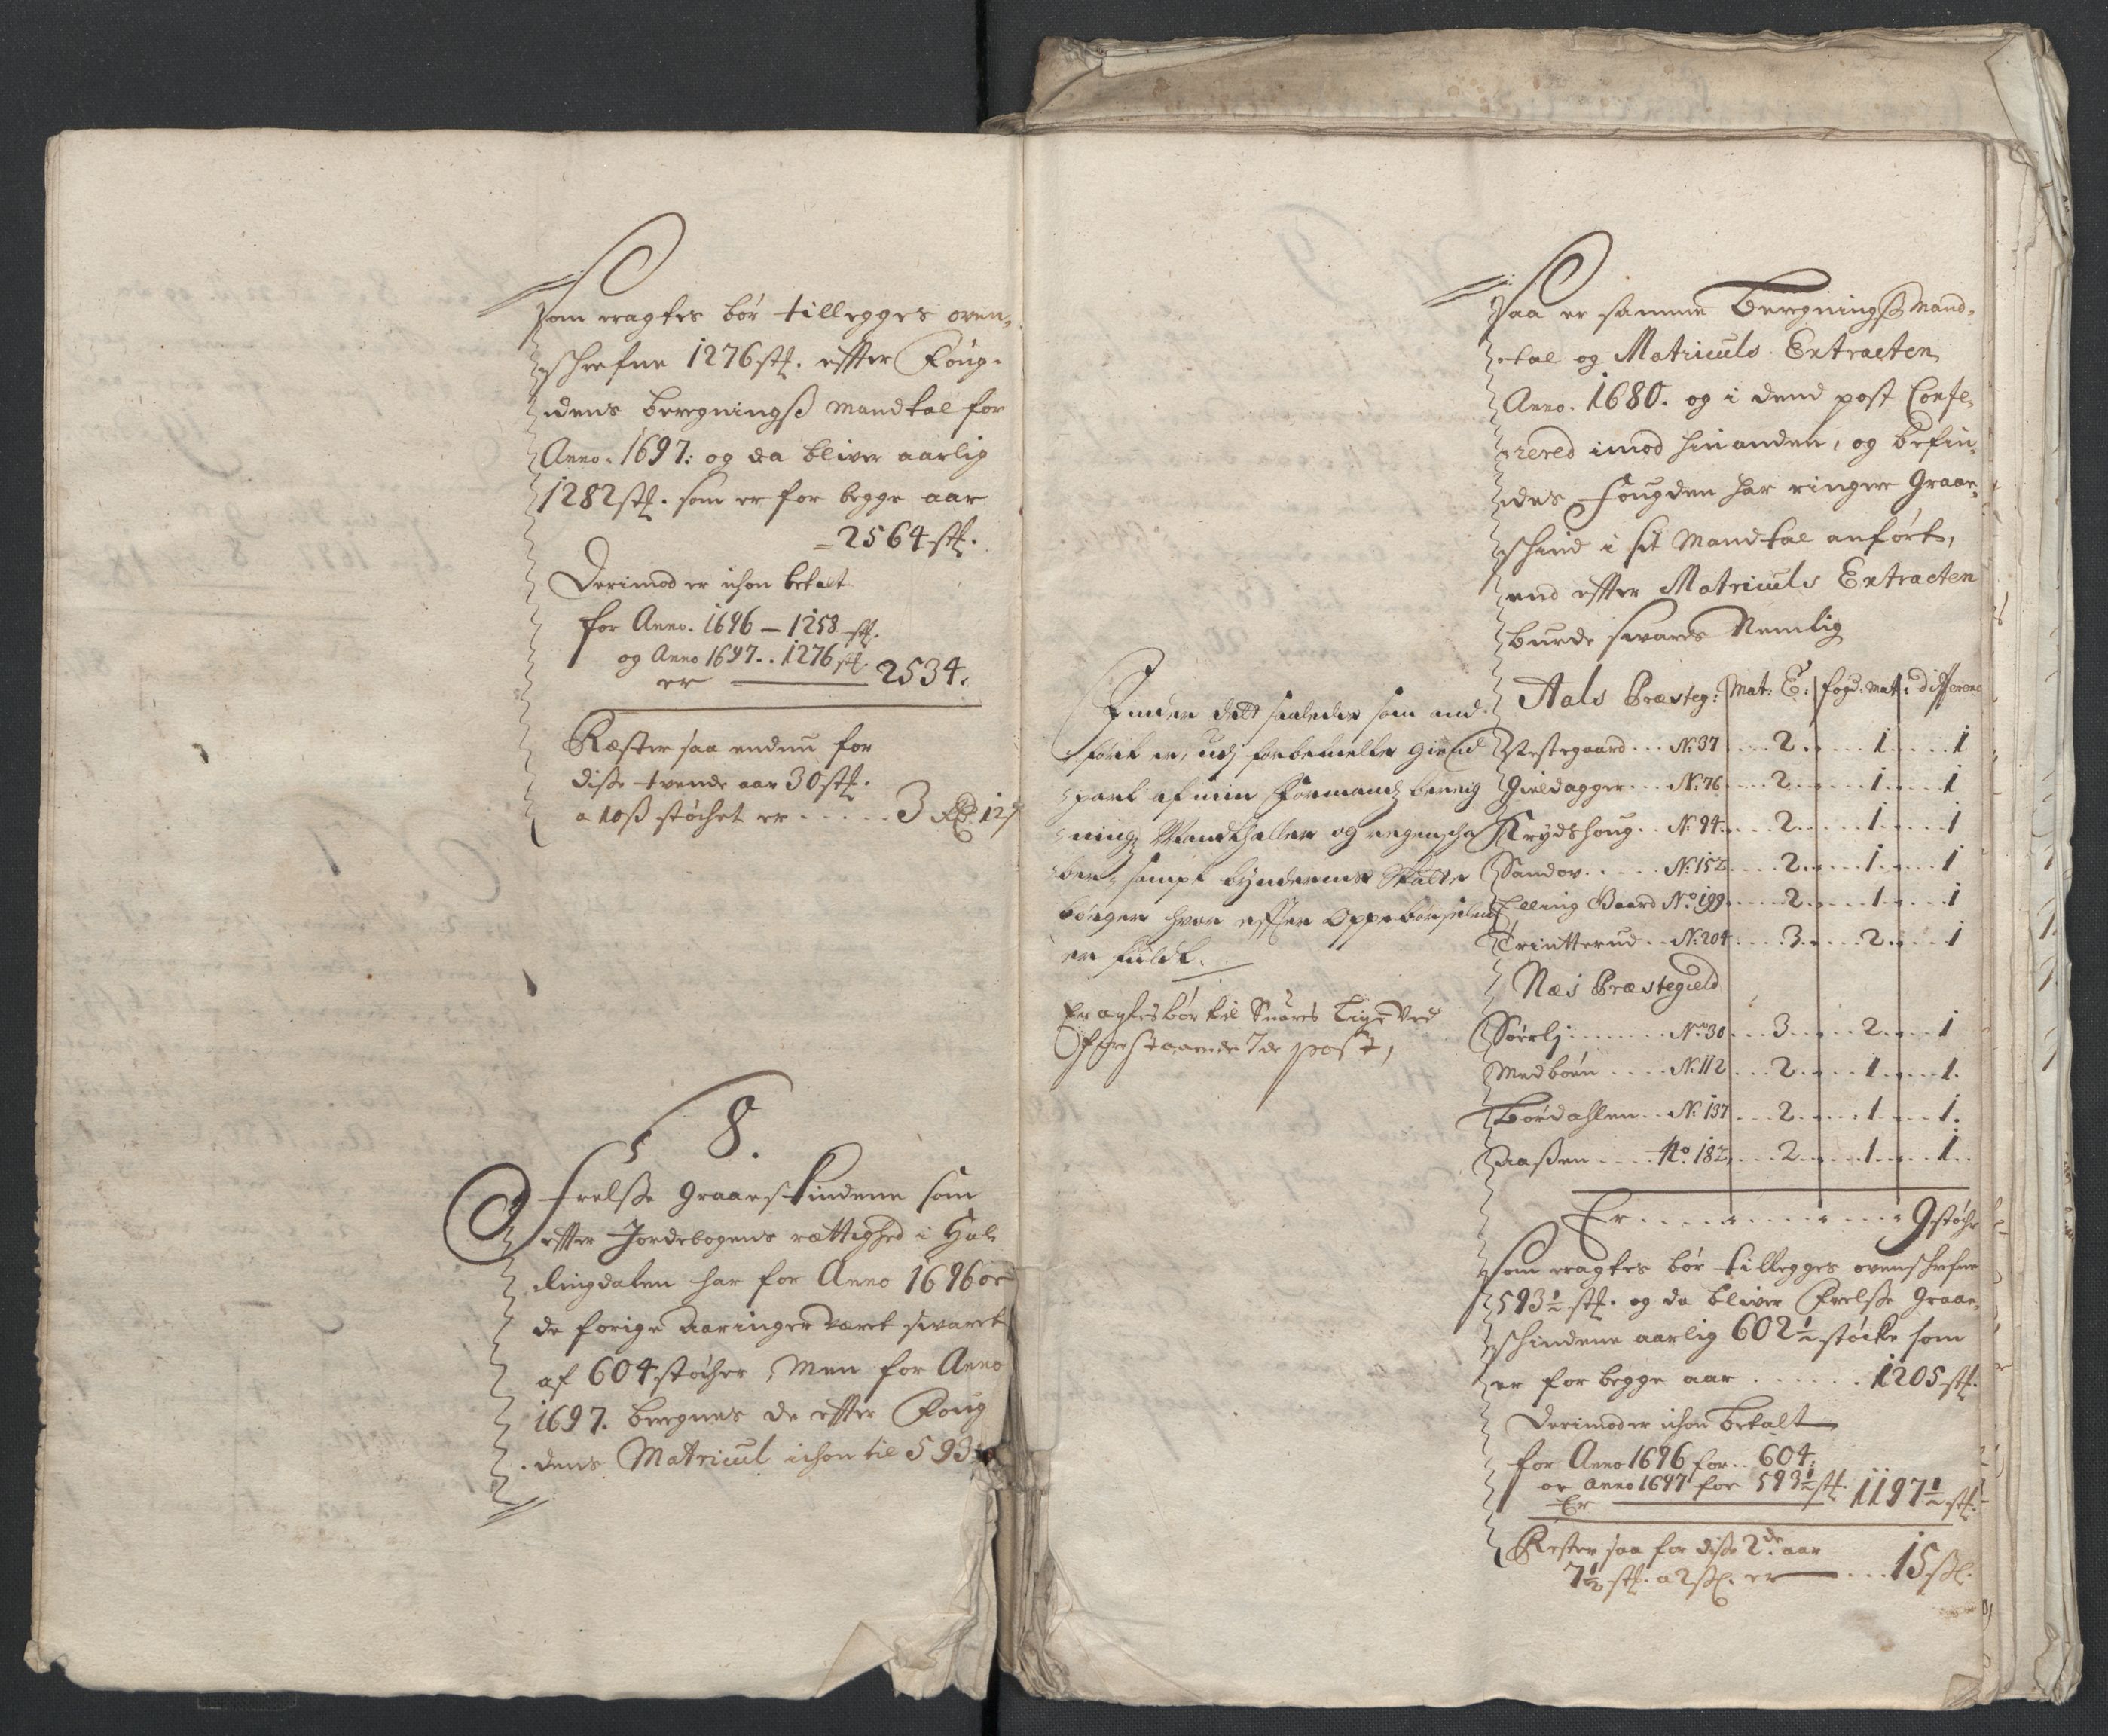 Som eragtes bør tillegges oven,
schrefne 1276 stk. effter Foug-
dens beregningß Mandtal for
Anno. 1697: og da bliver aarlig
1282 stk. som er for begge aar
=2564 stk.
Derimod er ichon betalt
for Anno. 1696 – 1258 stk.
og Anno 1697.. 1276 stk.
er 2534.
Ræster saa endnu for
diße tvende aar 30 stk.
a 10ß støchet er . . . . . 3 Rd. 12ß
8.
Frelße Graaeskindene som
effter Jordebogens rettighed i Hal
lingdalen har for Anno 1696 oc
de forige Aaringer været svaret
af 604 støcher, Men for Anno
1697. beregnes de effter Foug
dens Matricul ichon til 593
Saa er samme Beregningß Mand-
tal og Matriculs Extracten
Anno. 1680. og i dend post Confe,
rered imod hinanden, og befin,
des Fougden har ringere Graae,
schind i sit Mandtal anført,
end effter Matriculs Extracten
burde svares Nemlig
Aals Præsteg: Mat: E: fogd: Mat: differenc
Vestegaard . . . No. 37 . . . . 2 . . . . 1 . . . . 1
Gieldagger . . . No. 76 . . . . 2 . . . . 1 . . . . 1
Krydshoug . . No. 94 . . . . 2 . . . . 1 . . . . 1
Sandov . . . . . No. 152 . . . . 2 . . . . 1 . . . . 1
Elling Gaard No. 199 . . . . 2 . . . . 1 . . . . 1
Trintterud . . No. 204 . . . . 3 . . . . 2 . . . . 1
Næs Præstegield
Sørlj . . . . . . . No. 30 . . . 3 . . . . 2 . . . . 1
Medbøen . . . . No. 112 . . . 2 . . . . 1 . . . . 1.
Børdahlen . . No. 137 . . . 2 . . . . 1 . . . . 1.
Aaßen . . . . No. 182 . . . 2 . . . . 1 . . . . 1.
Er . . . . . . . . . . . 9 støche
Som eragtes bør tillegges ovenschrefne
593 1/2 stk. og da bliver Frelße Graae,
schindene aarlig 602 1/2 støcke som
er for begge aar . . . . . . 1205 stk.
Derimod er ichon betalt
for Anno 1696 for . . 604.
oc Anno 1697 for 593 1/2 stk.
Er 1197 1/2 stk.
Rester saa for diße 2de aar
7 1/2 stk. a 2 ßl. er . . . 15 ßl.
Finder dett saaledis som and-
ført er, udj forbemelte giend
part af min Formandz bereig
ningz Mandthaller og regenscha
ber, sampt bøndernis Skatte
bøger hvor effter Oppebørselen
er fuldt.
Eragtes bør til Svares lige ved
forestaaende 7de post,